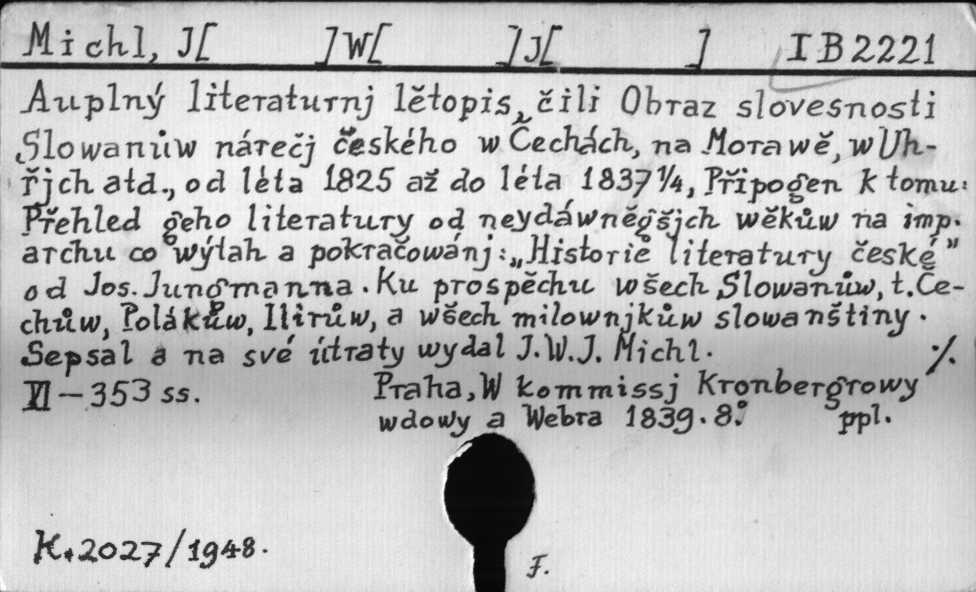 Michl, J[ ]W[ ]J[ ] I B 2221
Auplný literaturnj lětopis, čili Obraz slovesnosti
Slowanůw nárečj českého w Čechách, na Morawě, w Uh-
řjch atd., od léta 1825 až do léta 1837 1/4, Připogen k tomu:
Přehled geho literatury od neydáwněgšjch wěkůw na imp.
archu co wýtah a pokračowánj: „Historie literatury české"
od Jos. Jungmanna. Ku prospěchu wšech Slowanůw, t. Če-
chůw, Polákůw, Ilirůw, a wšech milownjkůw slowanštiny.
Sepsal a na své útraty wydal J. W. J. Michl. ./.
VI – 353 ss. Praha, W kommissj Kronbergrowy
wdowy a Webra 1839. 8.° ppl.
K. 2027/1948.
F.